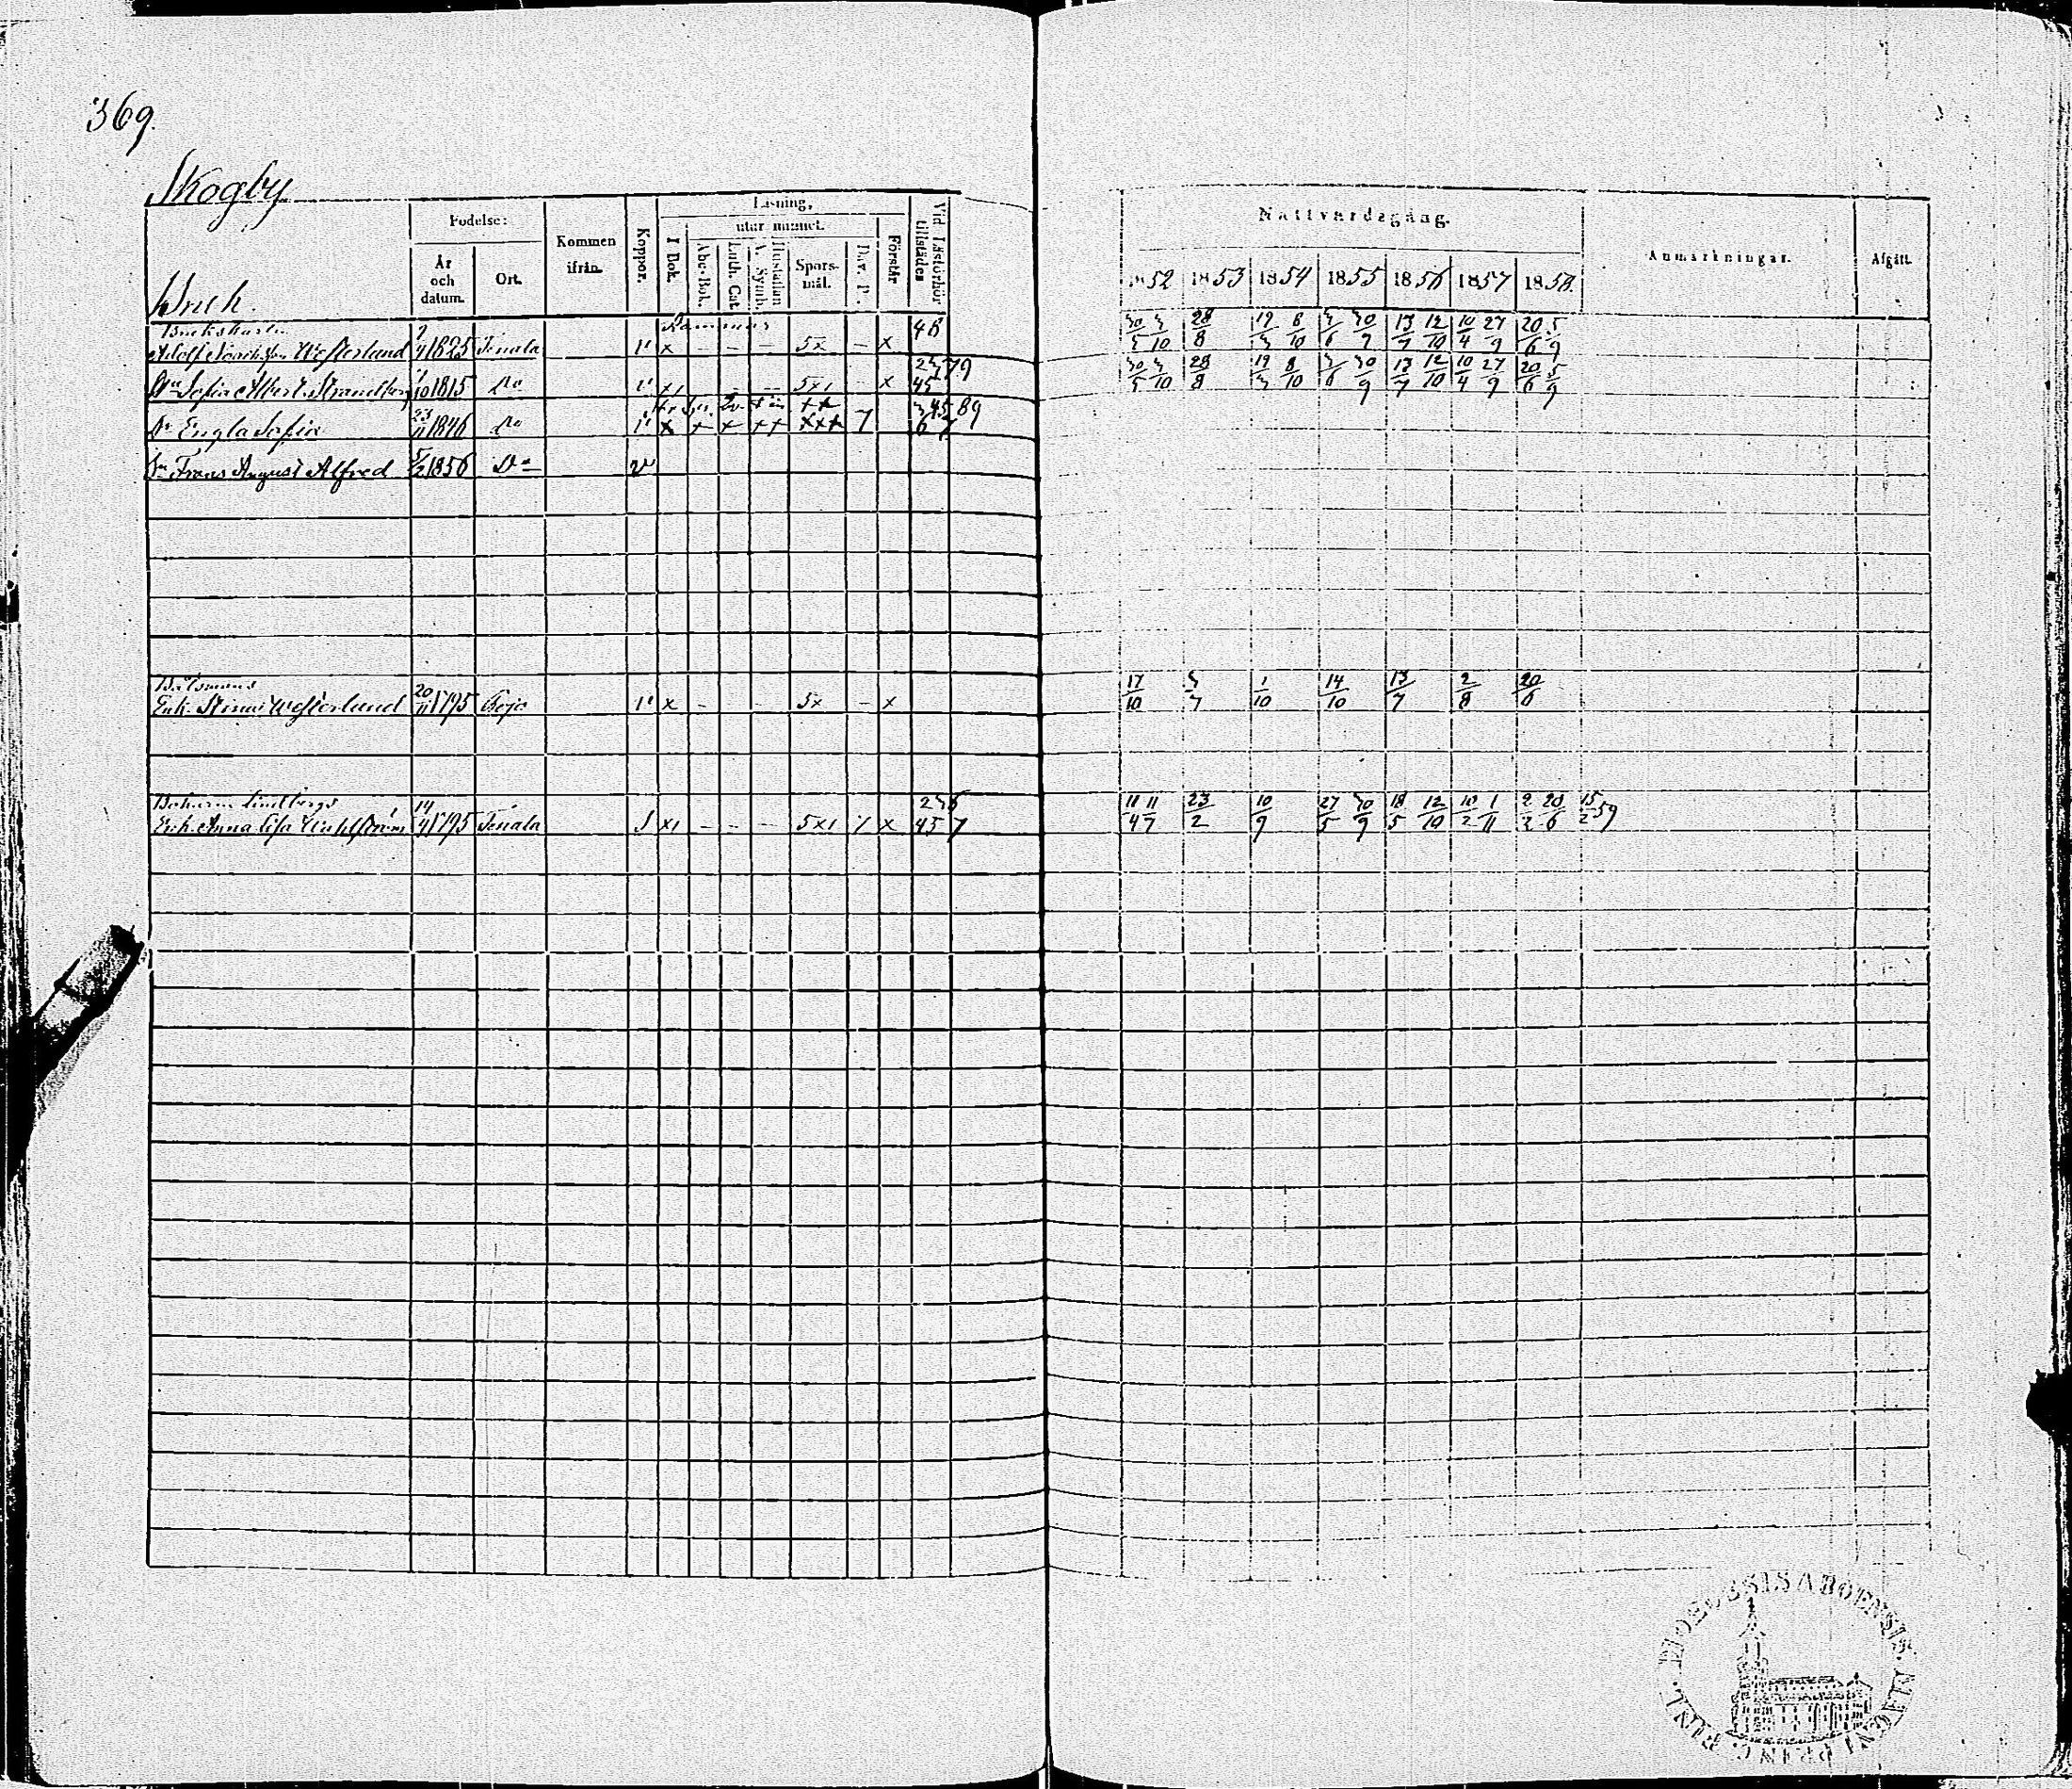 369.
Skogby
Bruk.
Födelse:
År och datum.
Ort.
Kommen ifrån.
Koppor.
Läsning,
I Bok.
utur minnet.
Abc-Bok.
Luth. Cat.
A. Symb.
Hustaflan
Spörs-mål.
Dav. P.
Förstår
Vid Läsförhör tillstädes
Nattvardsgång.
1852 1853 1854 1855 1856 1857 1858.
Anmärkningar.
Afgått.
Brukskarln 48
Adolf Westerlund 1825 Tenala x - - - 5x - x
30/5 10 28/8 19/3 8/10 6 30/9 13/7 12/10 10/4 27/9 20/6 5/9
Hu Sofia Albert. Strandberg 10 1815 Do x1 - - 5x1 - x 45 79
30/5 10 28/8 19/3 8/10 6 30/9 13/7 12/10 10/4 27/9 20/6 5/9
Dr Engla Sofia 23/11 1846 Do x + + ++ xxx 7 6 7 89
Sn Frans August Alfred 5/2 1856 Do v
Båtsmans
Enk. Stina Westerlund 20/11 1795 x - - 5x - x
17/10 3/7 1/10 14/10 13/7 2/8 20/6
Lindbergs
Enk. Anna Lisa Wahlström 14/4 1795 Tenala x1 - - - 5x1 x 45 7
11/4 11/7 23/2 10/9 27/5 30/9 18/5 12/10 10/2 1/11 2/2 20/6 15/2 59
DIOECESIS ABOENSIS
MAGNI PRINC. FINL.